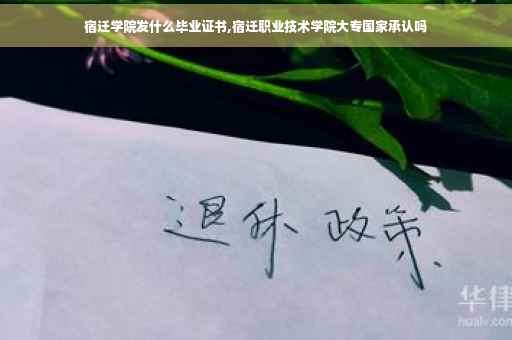 宿迁学院发什么毕业证书,宿迁职业技术学院大专国家承认吗
退休 政策
华律
hualv.com